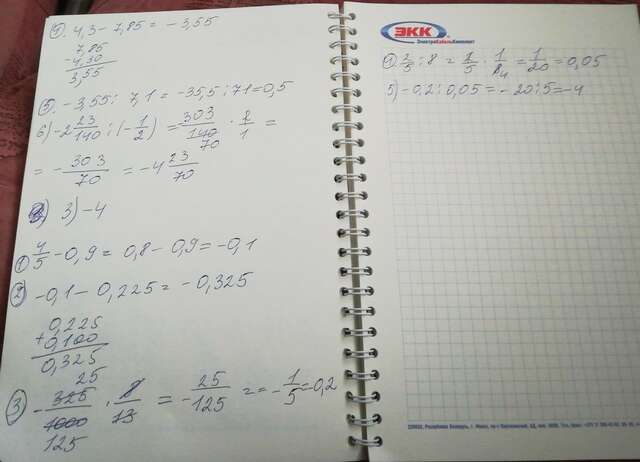 1. 4,3 - 7,85 = -3,55
7,85
- 4,30
3,55
5. -3,55 : 7,1 = -35,5 : 71 = 0,5
6) -2 23/140 : (-1/2) = 303/140 70 · 2/1 =
= -303/70 = -4 23/70
3) -4
1) 4/5 - 0,9 = 0,8 - 0,9 = -0,1
2) -0,1 - 0,225 = -0,325
0,225
+ 0,100
0,325
25
3) -325/1000 · 8/13 = -25/125 = = -1/5 = -0,2
125
ЭКК
ЭлектроКабельКомплект
1. 2/5 : 8 = 2/5 · 1/8 4 = 1/20 = 0,05
5) -0,2 : 0,05 = -20 : 5 = -4